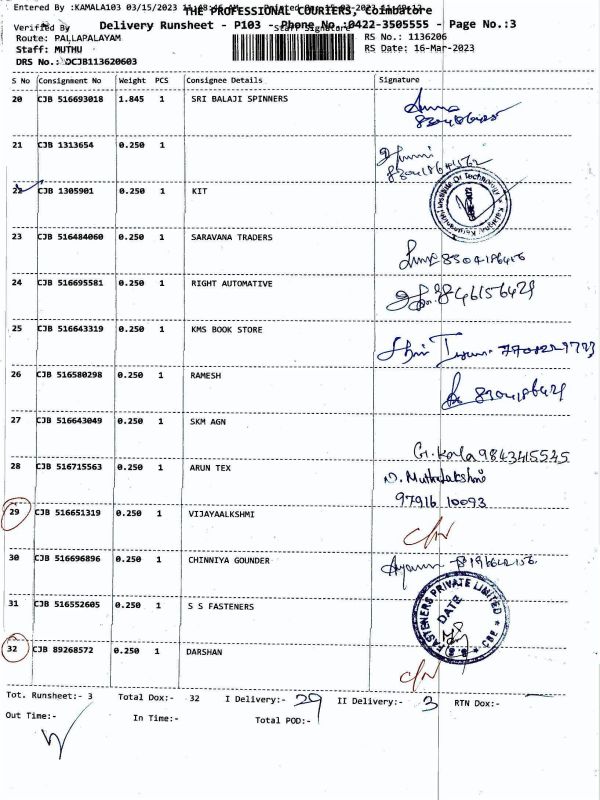 Entered By :KAMALA103 03/15/2023
THE PROFESSIONAL COURIERS, Coimbatore
Verified By
Delivery Runsheet - P103 - Phone No.:0422-3505555 - Page No.:3
Staff Signature
Route: PALLAPALAYAM
RS No.: 1136206
Staff: MUTHU
RS Date: 16-Mar-2023
DRS No.: DCJB113620603
S No Consignment No Weight PCS Consignee Details Signature
20 CJB 516693018 1.845 1 SRI BALAJI SPINNERS
21 CJB 1313654 0.250 1
22 CJB 1305901 0.250 1 KIT
23 CJB 516484060 0.250 1 SARAVANA TRADERS
24 CJB 516695581 0.250 1 RIGHT AUTOMATIVE
25 CJB 516643319 0.250 1 KMS BOOK STORE
26 CJB 516580298 0.250 1 RAMESH
27 CJB 516643049 0.250 1 SKM AGN
G. Kala 9843415545
28 CJB 516715563 0.250 1 ARUN TEX
N. Muthulakshmi
97916 10093
29 CJB 516651319 0.250 1 VIJAYAALKSHMI
C/N
30 CJB 516696896 0.250 1 CHINNIYA GOUNDER
31 CJB 516552605 0.250 1 S S FASTENERS
FASTENERS PRIVATE LIMITED
DATE
CBE
32 CJB 89268572 0.250 1 DARSHAN
C/N
Tot. Runsheet:- 3 Total Dox:- 32 I Delivery:- 29 II Delivery:- 3 RTN Dox:-
Out Time:- In Time:- Total POD:-